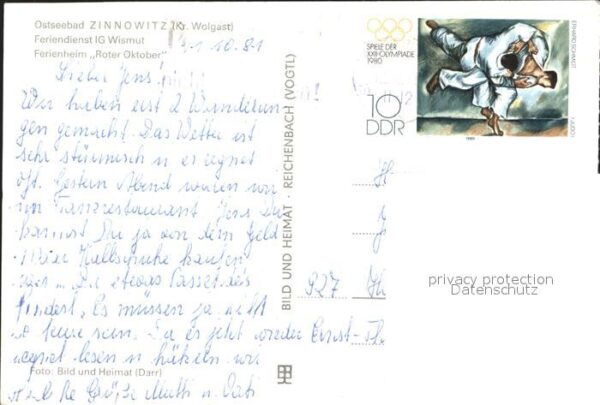 Ostseebad ZINNOWITZ (Kr. Wolgast)
Feriendienst IG Wismut
Ferienheim „Roter Oktober"
31.10.81
Lieber Jens!
Wir haben erst 2 Wanderun
gen gemacht. Das Wetter ist
sehr stürmisch u es regnet
oft. Gestern Abend waren wir
im Tanzrestaurant. Jens Du
kannst Du ja von dem Geld
kaufen
etwas Passendes
findest. Es müssen ja nicht
sein. Da es jetzt wieder
regnet lesen u häkeln wir
Grüße Mutti u. Vati
Foto: Bild und Heimat (Darr)
BILD UND HEIMAT · REICHENBACH (VOGTL)
SPIELE DER
XXII.OLYMPIADE
1980
10
DDR
ERHARD SCHMIDT
JUDO
1980
927
Ernst-Th
privacy protection
Datenschutz